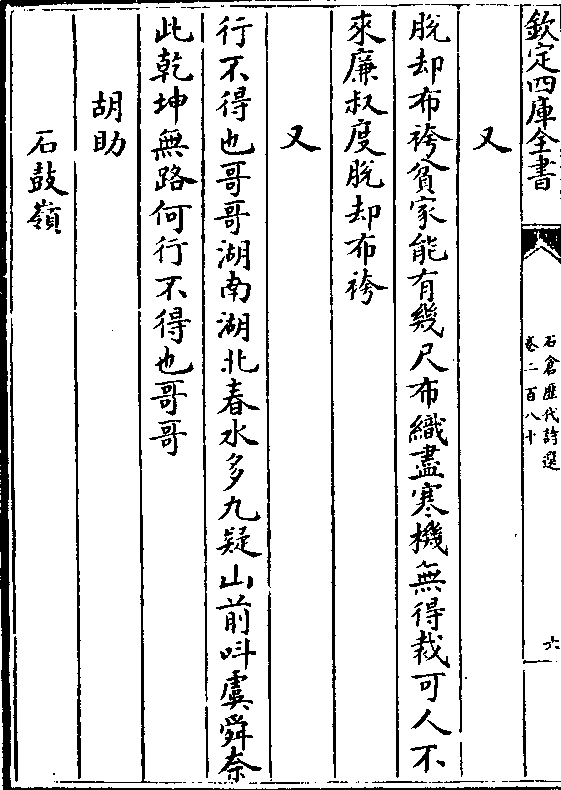 欽定四庫全書
石倉歷代詩選
卷二百八十
六
又
脫却布袴貧家能有幾尺布織盡寒機無得裁可人不
來廉叔度脫却布袴
又
行不得也哥哥湖南湖北春水多九疑山前呌虞舜奈
此乾坤無路何行不得也哥哥
胡助
石鼓嶺